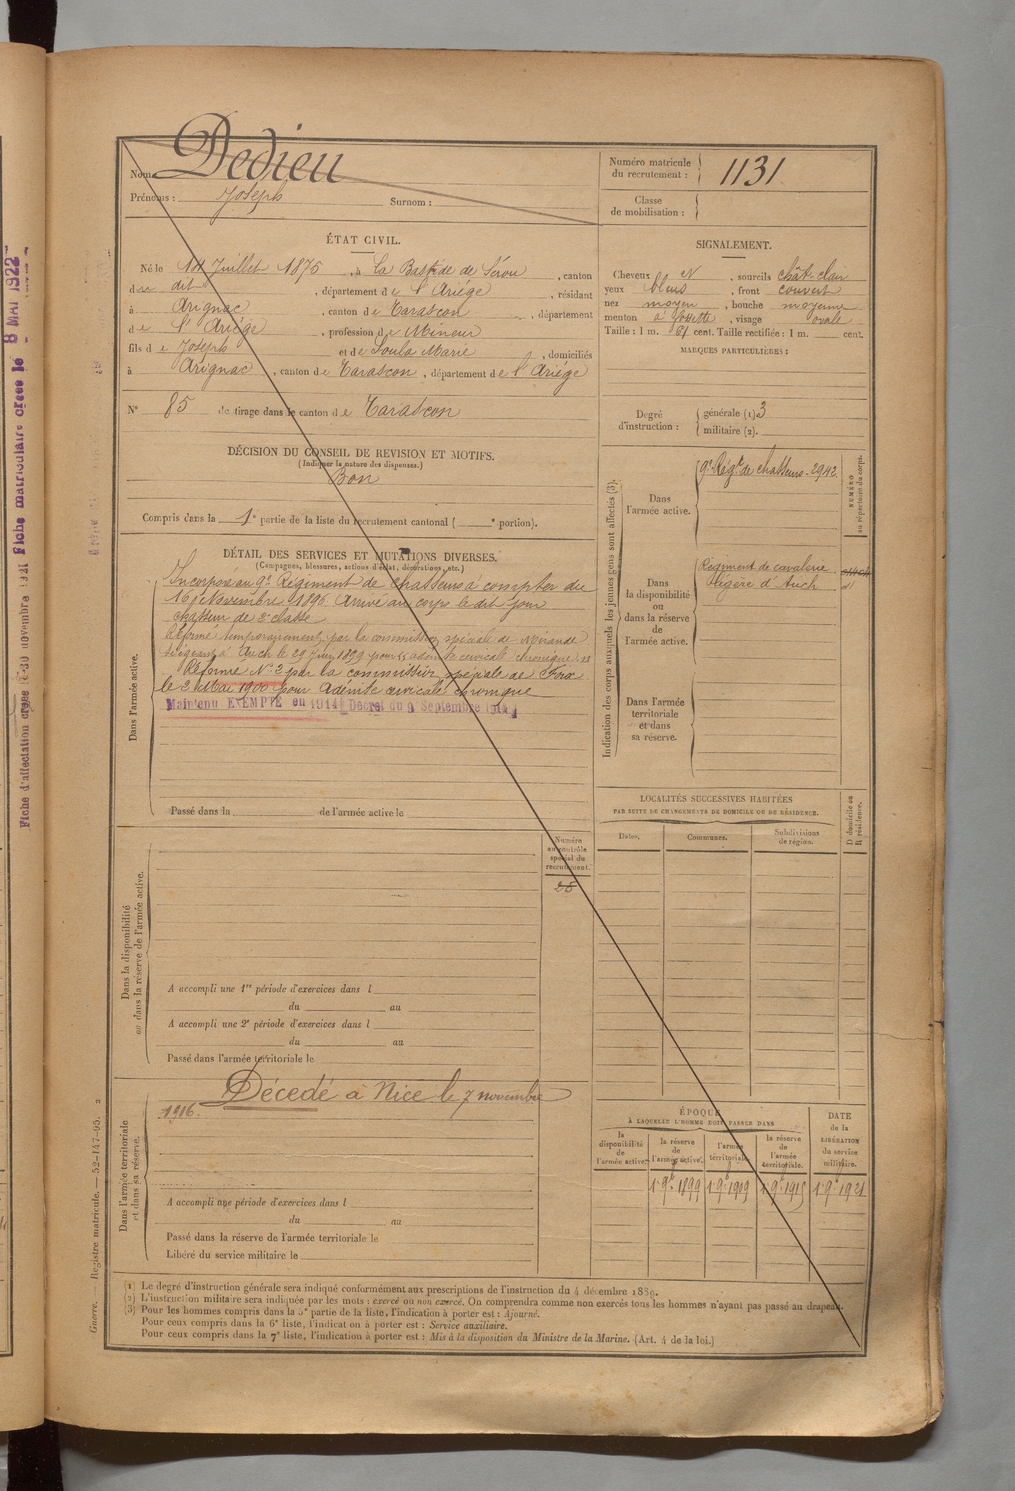 Dedieu
Nom
Prénoms : Joseph Surnom :
Numéro matricule du recrutement : 1131
Classe de mobilisation :
ÉTAT CIVIL.
Né le 14 Juillet 1875, à La Bastide de Sérou, canton
du dit, département de l'Ariége, résidant
à Arignac, canton de Tarascon, département
de l'Ariége, profession de Mineur
fils de Joseph et de Soula Marie, domiciliés
à Arignac, canton de Tarascon, département de l'Ariége
N° 85 de tirage dans le canton de Tarascon
SIGNALEMENT.
Cheveux N, sourcils chât-clair
yeux bleus, front couvert
nez moyen, bouche moyenne
menton à fossette, visage ovale
Taille : 1 m. 61 cent. Taille rectifiée : 1 m. cent.
MARQUES PARTICULIÈRES :
Degré d'instruction : générale (1) 3
militaire (2).
DÉCISION DU CONSEIL DE REVISION ET MOTIFS.
(Indiquer la nature des dispenses.)
Bon
Compris dans la 1e partie de la liste du recrutement cantonal ( e portion).
DÉTAIL DES SERVICES ET MUTATIONS DIVERSES.
(Campagnes, blessures, actions d'éclat, décorations, etc.)
Dans l'armée active.
Incorporé au 9e Régiment de chasseurs à compter du
16 Novembre 1896. Arrivé au corps le dit jour
chasseur de 2e classe
Réformé temporairement par la commission spéciale de Mirande
siégeant à Auch le 29 Juin 1899 pour adénite cervicale chronique
Réformé N° 2 par la commission spéciale de Foix
le 2 Mai 1900 pour Adénite cervicale chronique
Maintenu EXEMPTÉ en 1914 Décret du 9 Septembre 1914
Passé dans la de l'armée active le
Indication des corps auxquels les jeunes gens sont affectés (3).
NUMÉRO au répertoire du corps.
Dans l'armée active.
9e Régt de chasseurs - 2942
Dans la disponibilité ou dans la réserve de l'armée active.
Régiment de cavalerie
légère d'Auch
Dans l'armée territoriale et dans sa réserve.
LOCALITÉS SUCCESSIVES HABITÉES
PAR SUITE DE CHANGEMENTS DE DOMICILE OU DE RÉSIDENCE.
Dates.
Communes.
Subdivisions de région.
D domicile ou R résidence.
Dans la disponibilité ou dans la réserve de l'armée active.
Numéro au contrôle spécial du recrutement.
25
A accompli une 1re période d'exercices dans l
du au
A accompli une 2e période d'exercices dans l
du au
Passé dans l'armée territoriale le
Dans l'armée territoriale et dans sa réserve.
Décedé à Nice le 7 novembre
1916.
A accompli une période d'exercices dans l
du au
Passé dans la réserve de l'armée territoriale le
Libéré du service militaire le
ÉPOQUE
À LAQUELLE L'HOMME DOIT PASSER DANS
la disponibilité de l'armée active.
la réserve de l'armée active.
l'armée territoriale.
la réserve de l'armée territoriale.
DATE de la LIBÉRATION du service militaire.
1 9bre 1899
1 9bre 1909
1 9bre 1915
1 9bre 1921
(1) Le degré d'instruction générale sera indiqué conformément aux prescriptions de l'instruction du 4 décembre 1889.
(2) L'instruction militaire sera indiquée par les mots : exercé ou non exercé. On comprendra comme non exercés tous les hommes n'ayant pas passé au drapeau.
(3) Pour les hommes compris dans la 5e partie de la liste, l'indication à porter est : Ajourné.
Pour ceux compris dans la 6e liste, l'indication à porter est : Service auxiliaire.
Pour ceux compris dans la 7e liste, l'indication à porter est : Mis à la disposition du Ministre de la Marine. (Art. 4 de la loi.)
Guerre. — Registre matricule. — 52-147-95. 2
Fiche matriculaire créée le 8 MAI 1922
Fiche d'affectation créée le 30 novembre 1921